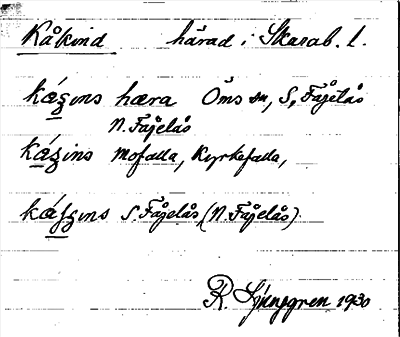 Kåkind härad i Skarab. l.
kázins hæra Öms sn, S. Fågelås
N. Fågelås
kázins Mofalla, Kyrkefalla,
káſzins S. Fågelås, (N. Fågelås).
R. Ljunggren 1930